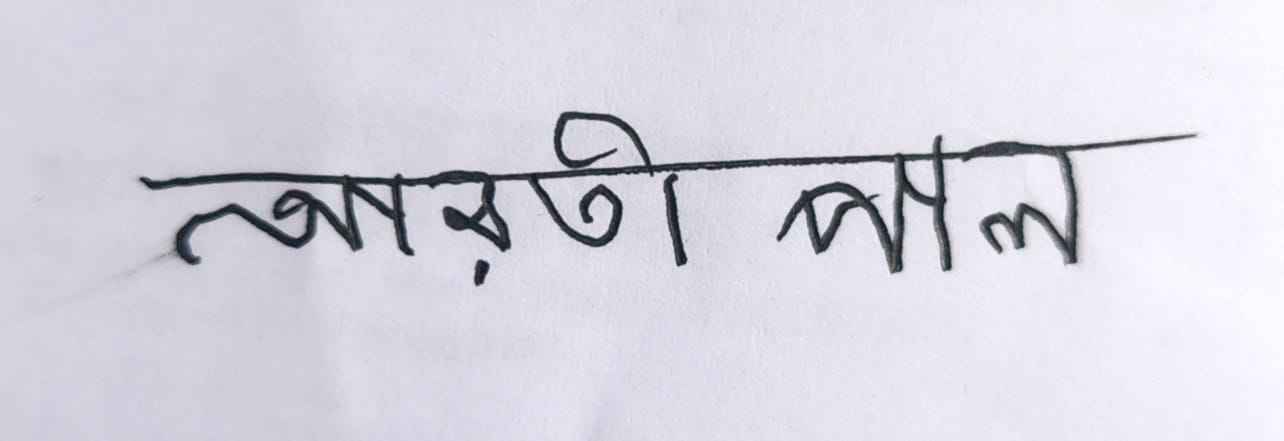 আরতী পাল